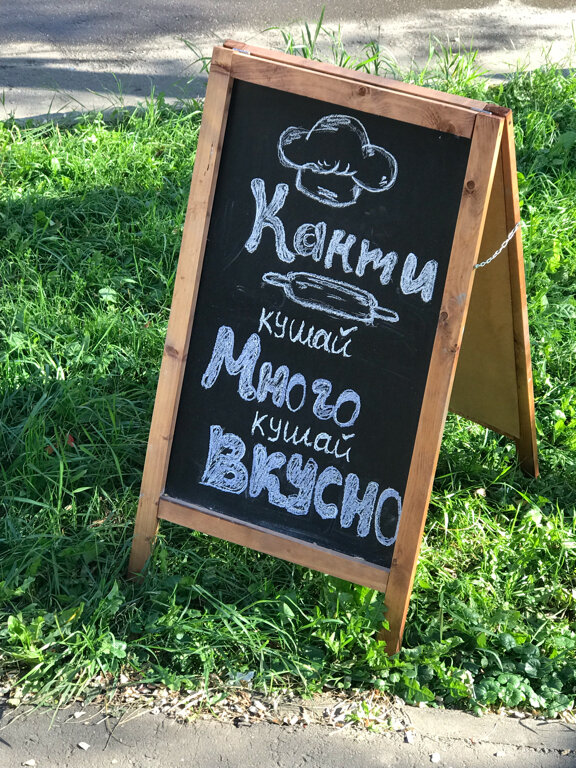 Канти
кушай
Много
кушай
Вкусно